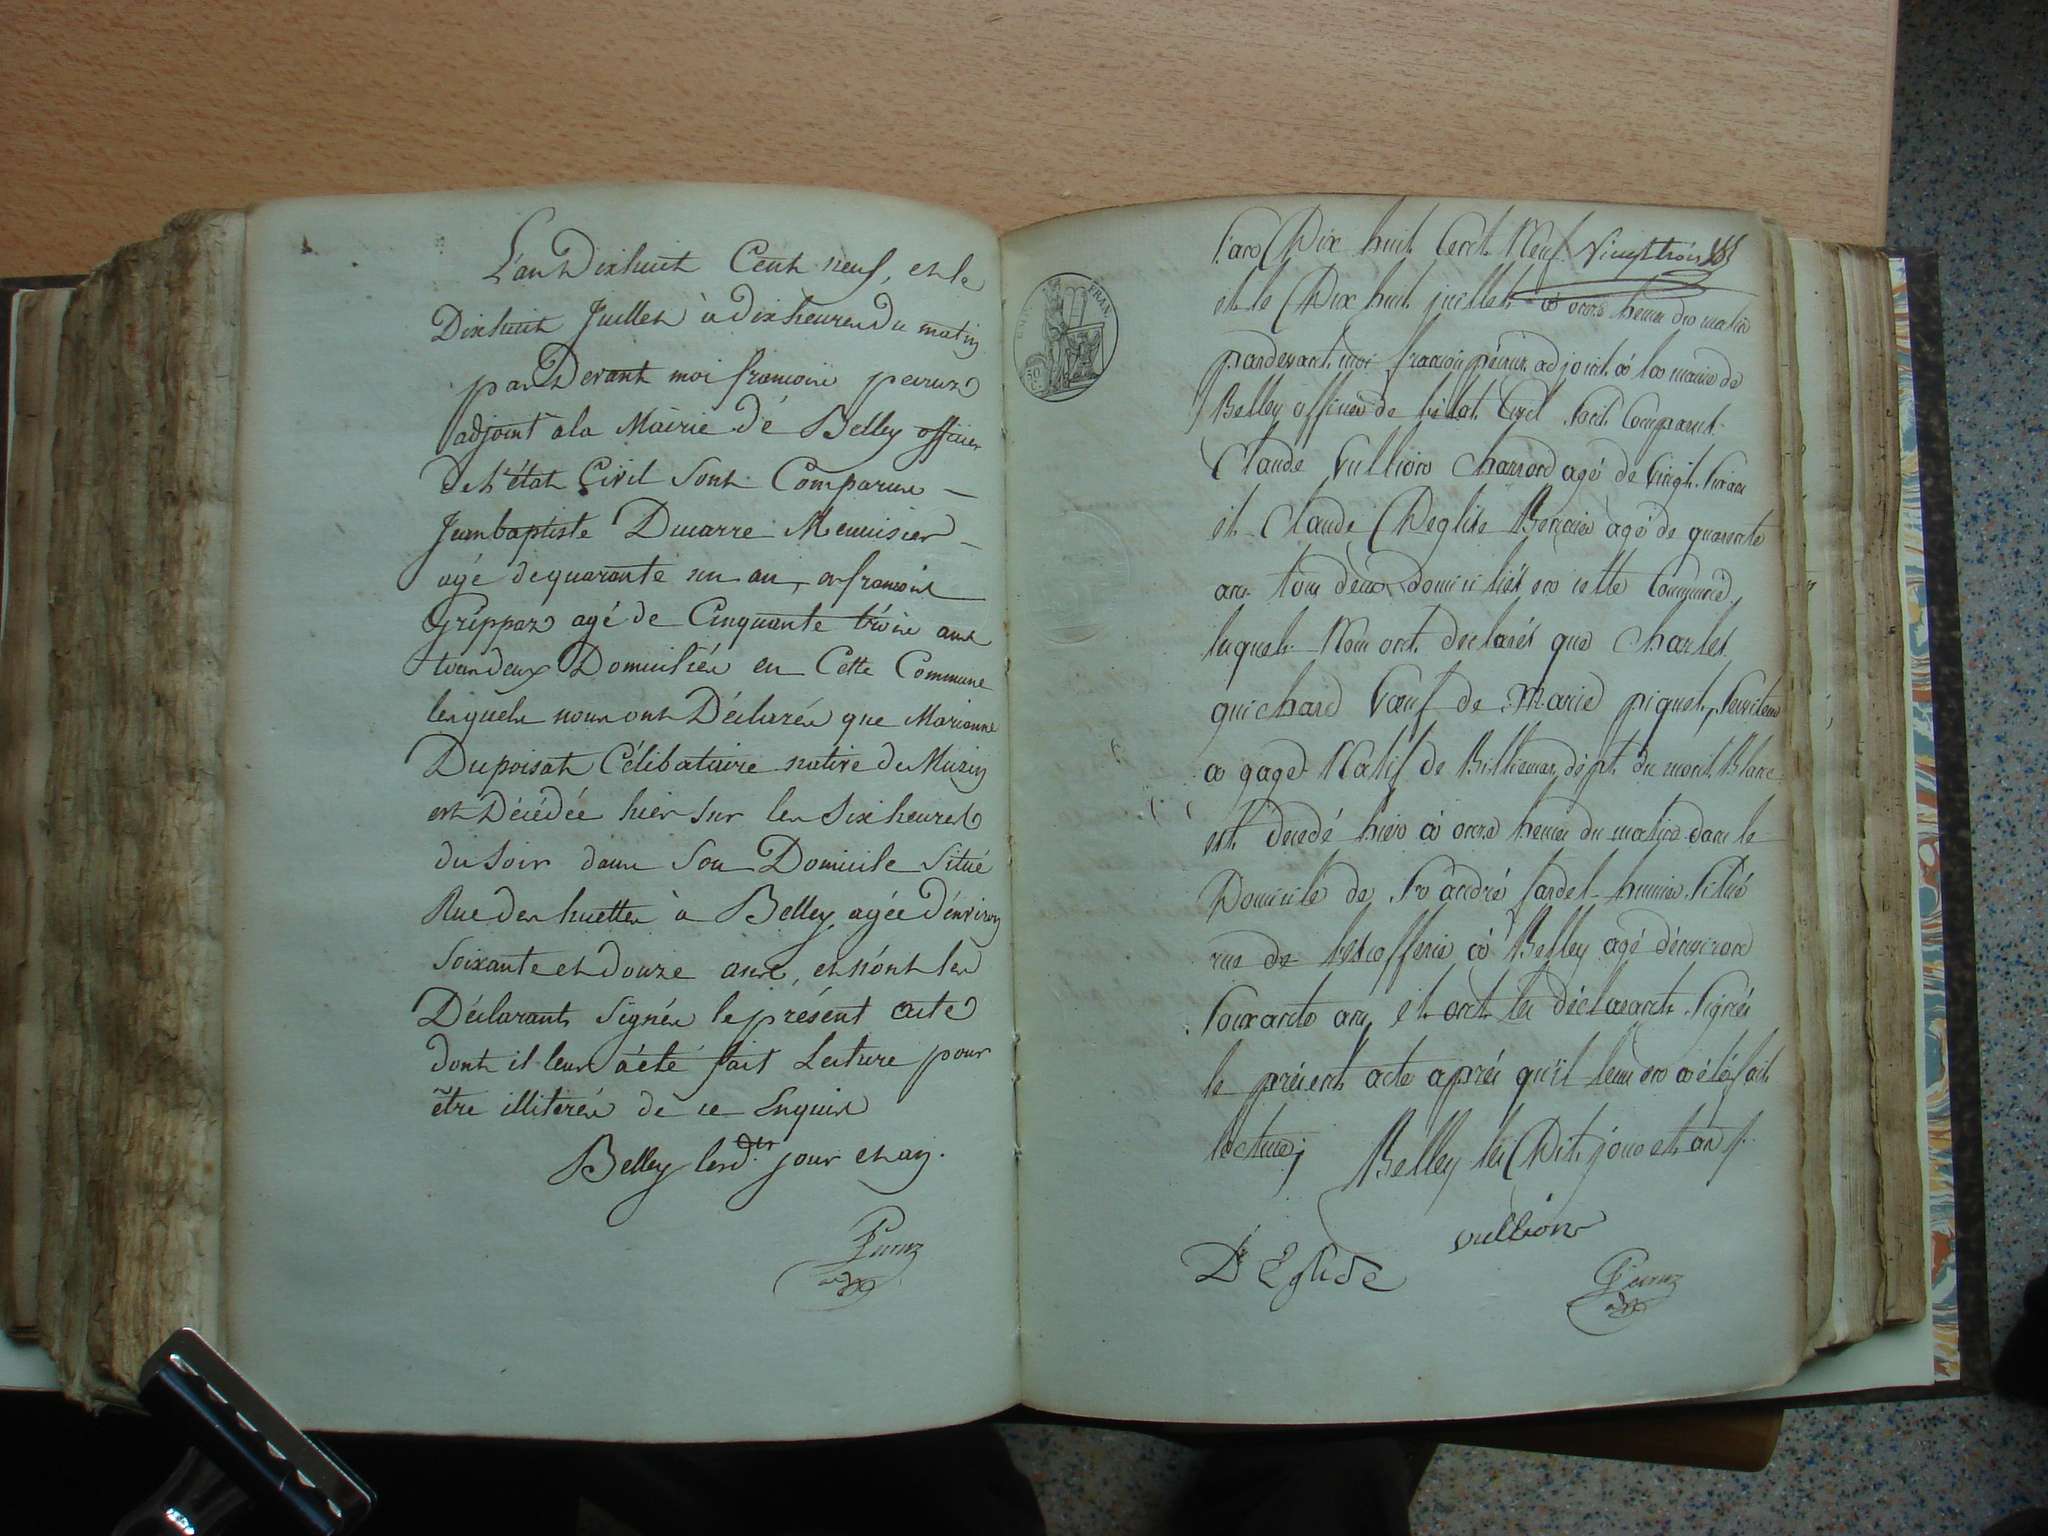 L'an Dixhuit Cent neuf, et le
Dixhuit Juillet à dix heures Du matin
par Devant moi francois peruz
adjoint à la Mairie dé Belley officier
de l'état Civil sont Comparus
Jeanbaptiste Ducarre Menuisier
agé de quarante un an, et francois
Grippaz agé de Cinquante trois ans
tous deux Domiciliés en Cette Commune
lesquels nous ont Déclarés que Marianne
Dupoisat Célibataire native de Muzin
est Décédée hier sur les Six heures
du soir dans son Domicile Situé
Rue des huettes à Belley, agée d'environ
soixante et douze ans, et n'ont les
Déclarants signés le présent acte
dont il leur à été fait Lecture pour
être illiterés de ce Enquis
Belley les d.ts jour et an.
Peruz
adj
Vingt trois
L'an Dix huit Cent Neuf
et le Dix huit juillet à onze heures du matin
pardevant moi francois péruz adjoint à la mairie de
Belley officier de l'état Civil sont Comparut
Claude Vullion agé de vingt six ans
et Claude Deglise agé de quarente
ans tous deux domiciliés en cette Commune
lesquels Nous ont declarés que Charles
guichard Veuf de Marie piquet, serviteur
a gage Natif de dépt. du mont Blanc
est decedé hier à onze heures du matin dans le
Domicile de Sr andré jardel huissier Situé
rue de à Belley agé d'environ
soixante ans et ont les déclarants signés
le présent acte aprés qu'il leur en a été fait
lecture; Belley les Dit jour et an
vullion
D'Eglise
Peruz
adj
FRAN.
50